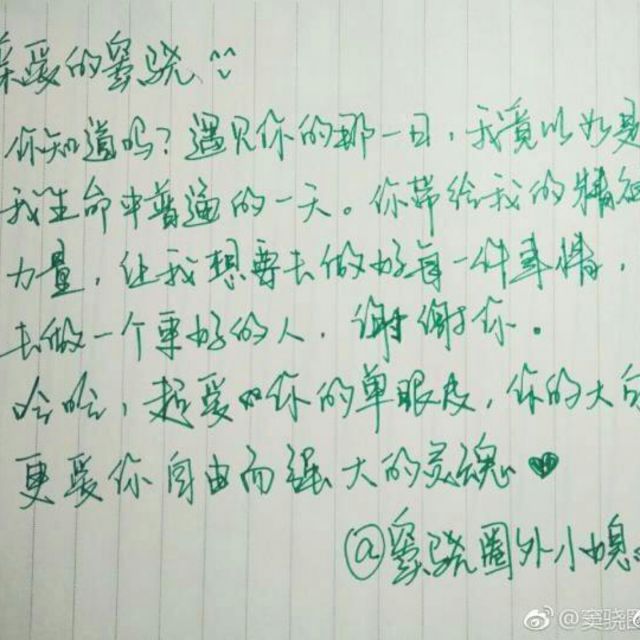 亲爱的窦骁
你知道吗？遇见你的那一日，我竟以为是
我生命中普通的一天。你带给我的精神
力量，让我想要去做好每一件事情，
去做一个更好的人．谢谢你．
哈哈，超爱你的单眼皮，你的大白
更爱你自由而强大的灵魂♥
@窦骁圈外小媳
@窦骁圈